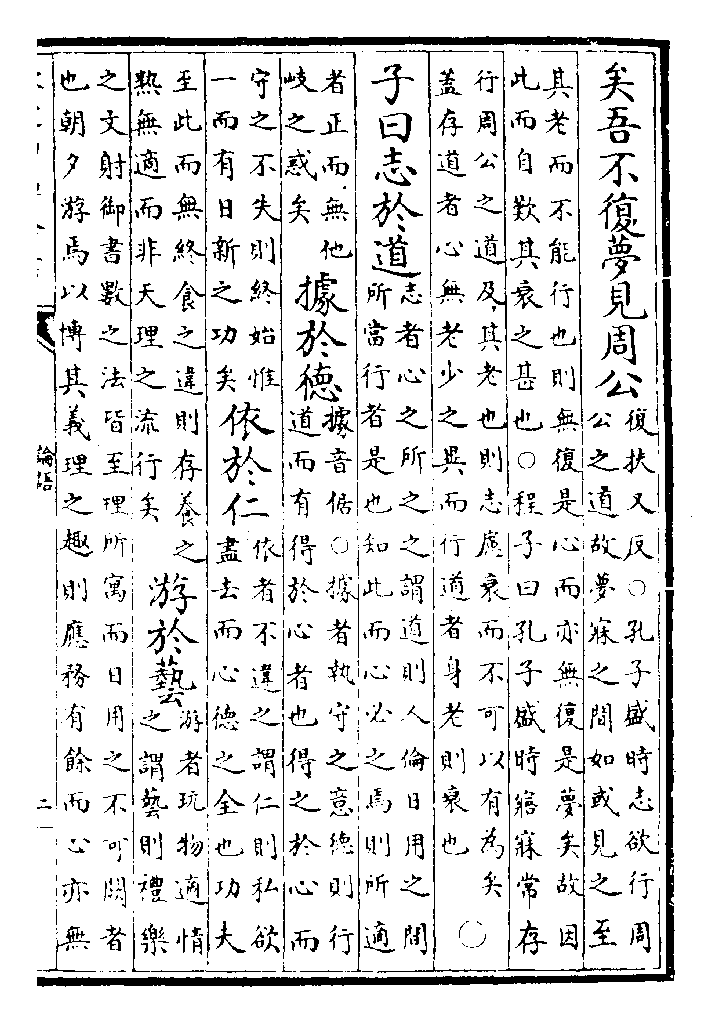 矣吾不復夢見周公復扶又反○孔子盛時志欲行周
公之道故夢寐之間如或見之至
其老而不能行也則無復是心而亦無復是夢矣故因
此而自歎其衰之甚也○程子曰孔子盛時寤寐常存
行周公之道及其老也則志慮衰而不可以有為矣
蓋存道者心無老少之異而行道者身老則衰也○
子曰志於道志者心之所之之謂道則人倫日用之間
所當行者是也知此而心必之焉則所適
者正而無他
岐之惑矣
據於德據音倨○據者執守之意德則行
道而有得於心者也得之於心而
守之不失則終始惟
一而有日新之功矣
依於仁依者不違之謂仁則私欲
盡去而心德之全也功夫
至此而無終食之違則存養之
熟無適而非天理之流行矣
游於藝游者玩物適情
之謂藝則禮樂
之文射御書數之法皆至理所寓而日用之不可闕者
也朝夕游焉以博其義理之趣則應務有餘而心亦無
論語
二